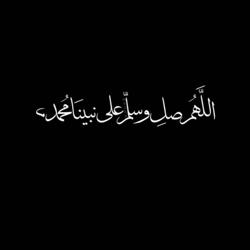 اللَّهُم صلِ وسلمِّ على نبينَا مُحمد